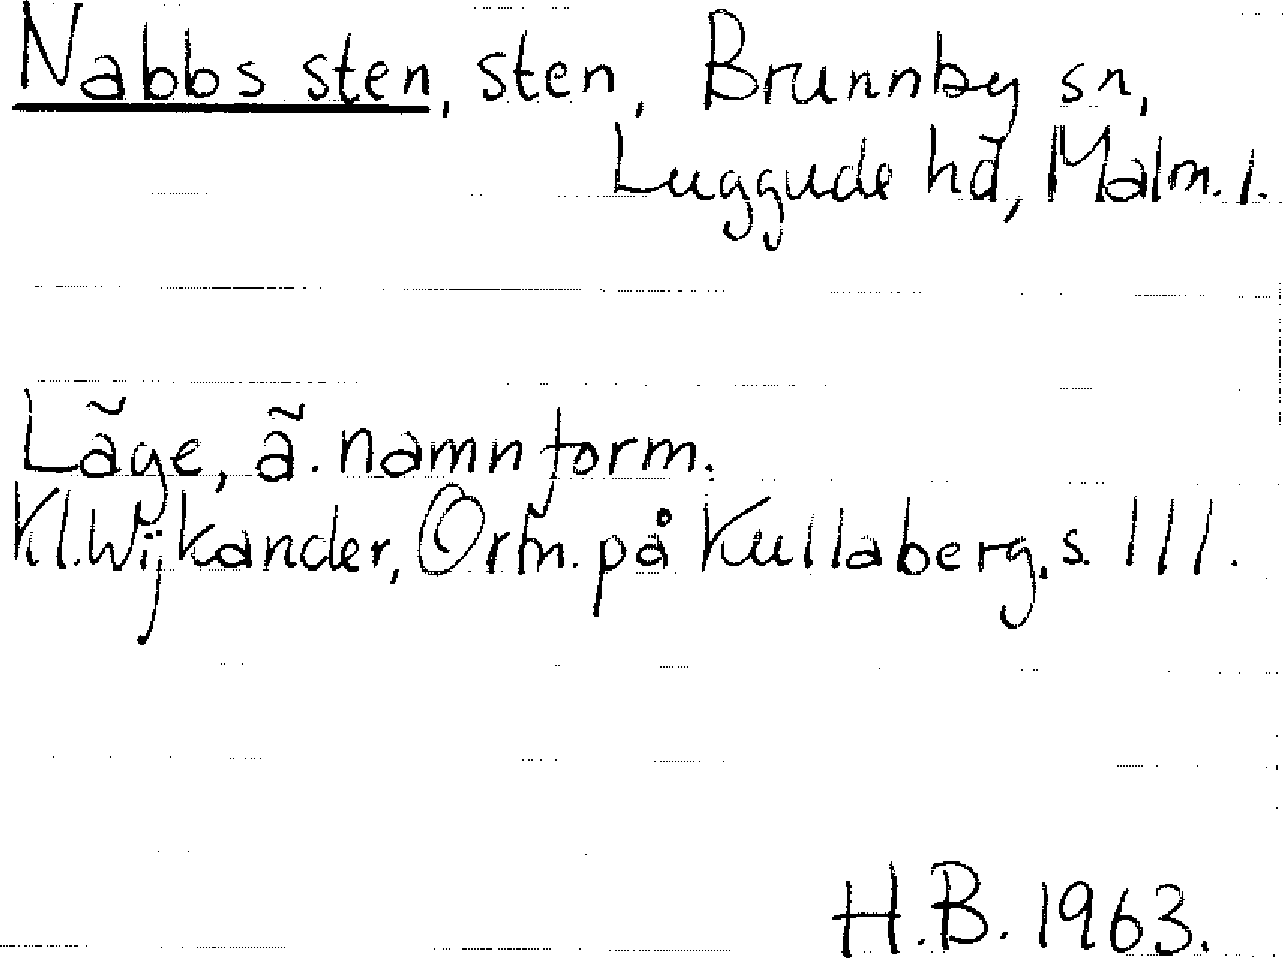 Nabbs sten, sten, Brunnby sn,
Luggude hd, Malm. l.
Läge, ä. namnform.
Kl. Wijkander, Ortn. på Kullaberg. s. 111.
H.B. 1963.